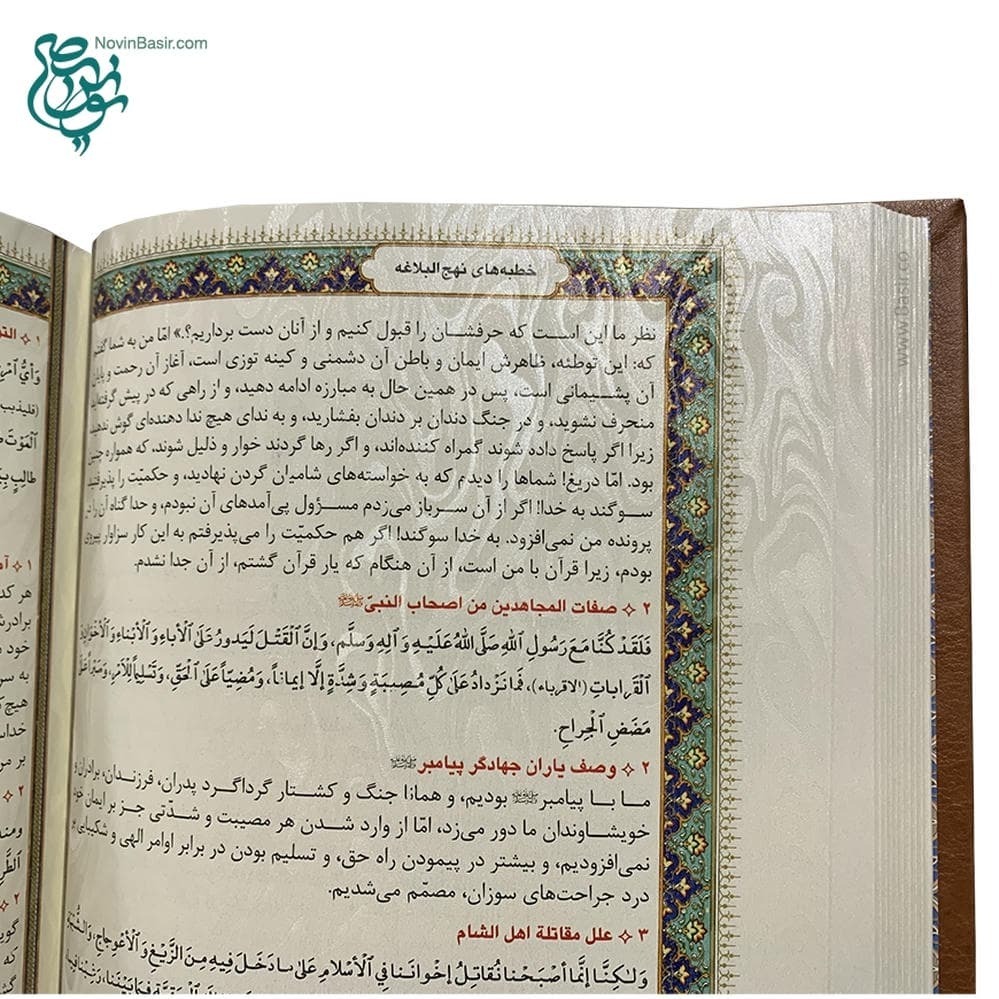 NovinBasir.com
www.Basir.co
خطبه‌های نهج البلاغه
نظر ما این است که حرفشان را قبول کنیم و از آنان دست برداریم؟.» امّا من به شما گفتم
که: این توطئه، ظاهرش ایمان و باطن آن دشمنی و کینه توزی است، آغاز آن رحمت و پایان
آن پشیمانی است، پس در همین حال به مبارزه ادامه دهید، و از راهی که در پیش گرفته‌اید
منحرف نشوید، و در جنگ دندان بر دندان بفشارید، و به ندای هیچ ندا دهنده‌ای گوش ندهید،
زیرا اگر پاسخ داده شوند گمراه کننده‌اند، و اگر رها گردند خوار و ذلیل شوند، که همواره چنین
بود. امّا دریغ! شماها را دیدم که به خواسته‌های شامیان گردن نهادید، و حکمیّت را پذیرفتید.
سوگند به خدا! اگر از آن سرباز می‌زدم مسؤول پی‌آمدهای آن نبودم، و خدا گناه آن را در
پرونده من نمی‌افزود. به خدا سوگند! اگر هم حکمیّت را می‌پذیرفتم به این کار سزاوار پیروی
بودم، زیرا قرآن با من است، از آن هنگام که یار قرآن گشتم، از آن جدا نشدم.
۲ صفات المجاهدین من اصحاب النبیّ
فَلَقَدْ کُنَّا مَعَ رَسُولِ اللهِ صَلَّی اللهُ عَلَیْهِ وَ آلِهِ وَسَلَّم، وَإِنَّ الْقَتْلَ لَیَدُورُ عَلَی الْآبَاءِ وَالْأَبْنَاءِ وَالْأِخْوَانِ وَ
الْقَرَابَاتِ (الاقرباء)، فَمَا نَزْدَادُ عَلَی کُلِّ مُصِیبَةٍ وَشِدَّةٍ إِلَّا إِیمَاناً، وَمُضِیّاً عَلَی الْحَقِّ، وَتَسْلِیماً لِلْأَمْرِ، وَصَبْراً عَلَی
مَضَضِ الْجِرَاحِ.
۲ وصف یاران جهادگر پیامبر
ما با پیامبر بودیم، و همانا جنگ و کشتار گرداگرد پدران، فرزندان، برادران و
خویشاوندان ما دور می‌زد، امّا از وارد شدن هر مصیبت و شدّتی جز بر ایمان خود
نمی‌افزودیم، و بیشتر در پیمودن راه حق، و تسلیم بودن در برابر اوامر الهی و شکیبایی بر
درد جراحت‌های سوزان، مصمّم می‌شدیم.
۳ علل مقاتلة اهل الشام
وَلٰکِنَّا إِنَّمَا أَصْبَحْنَا نُقَاتِلُ إِخْوَانَنَا فِی الْأِسْلَامِ عَلَی مَا دَخَلَ فِیهِ مِنَ الزَّیْغِ وَالْأِعْوِجَاجِ، وَالشُّبْهَةِ